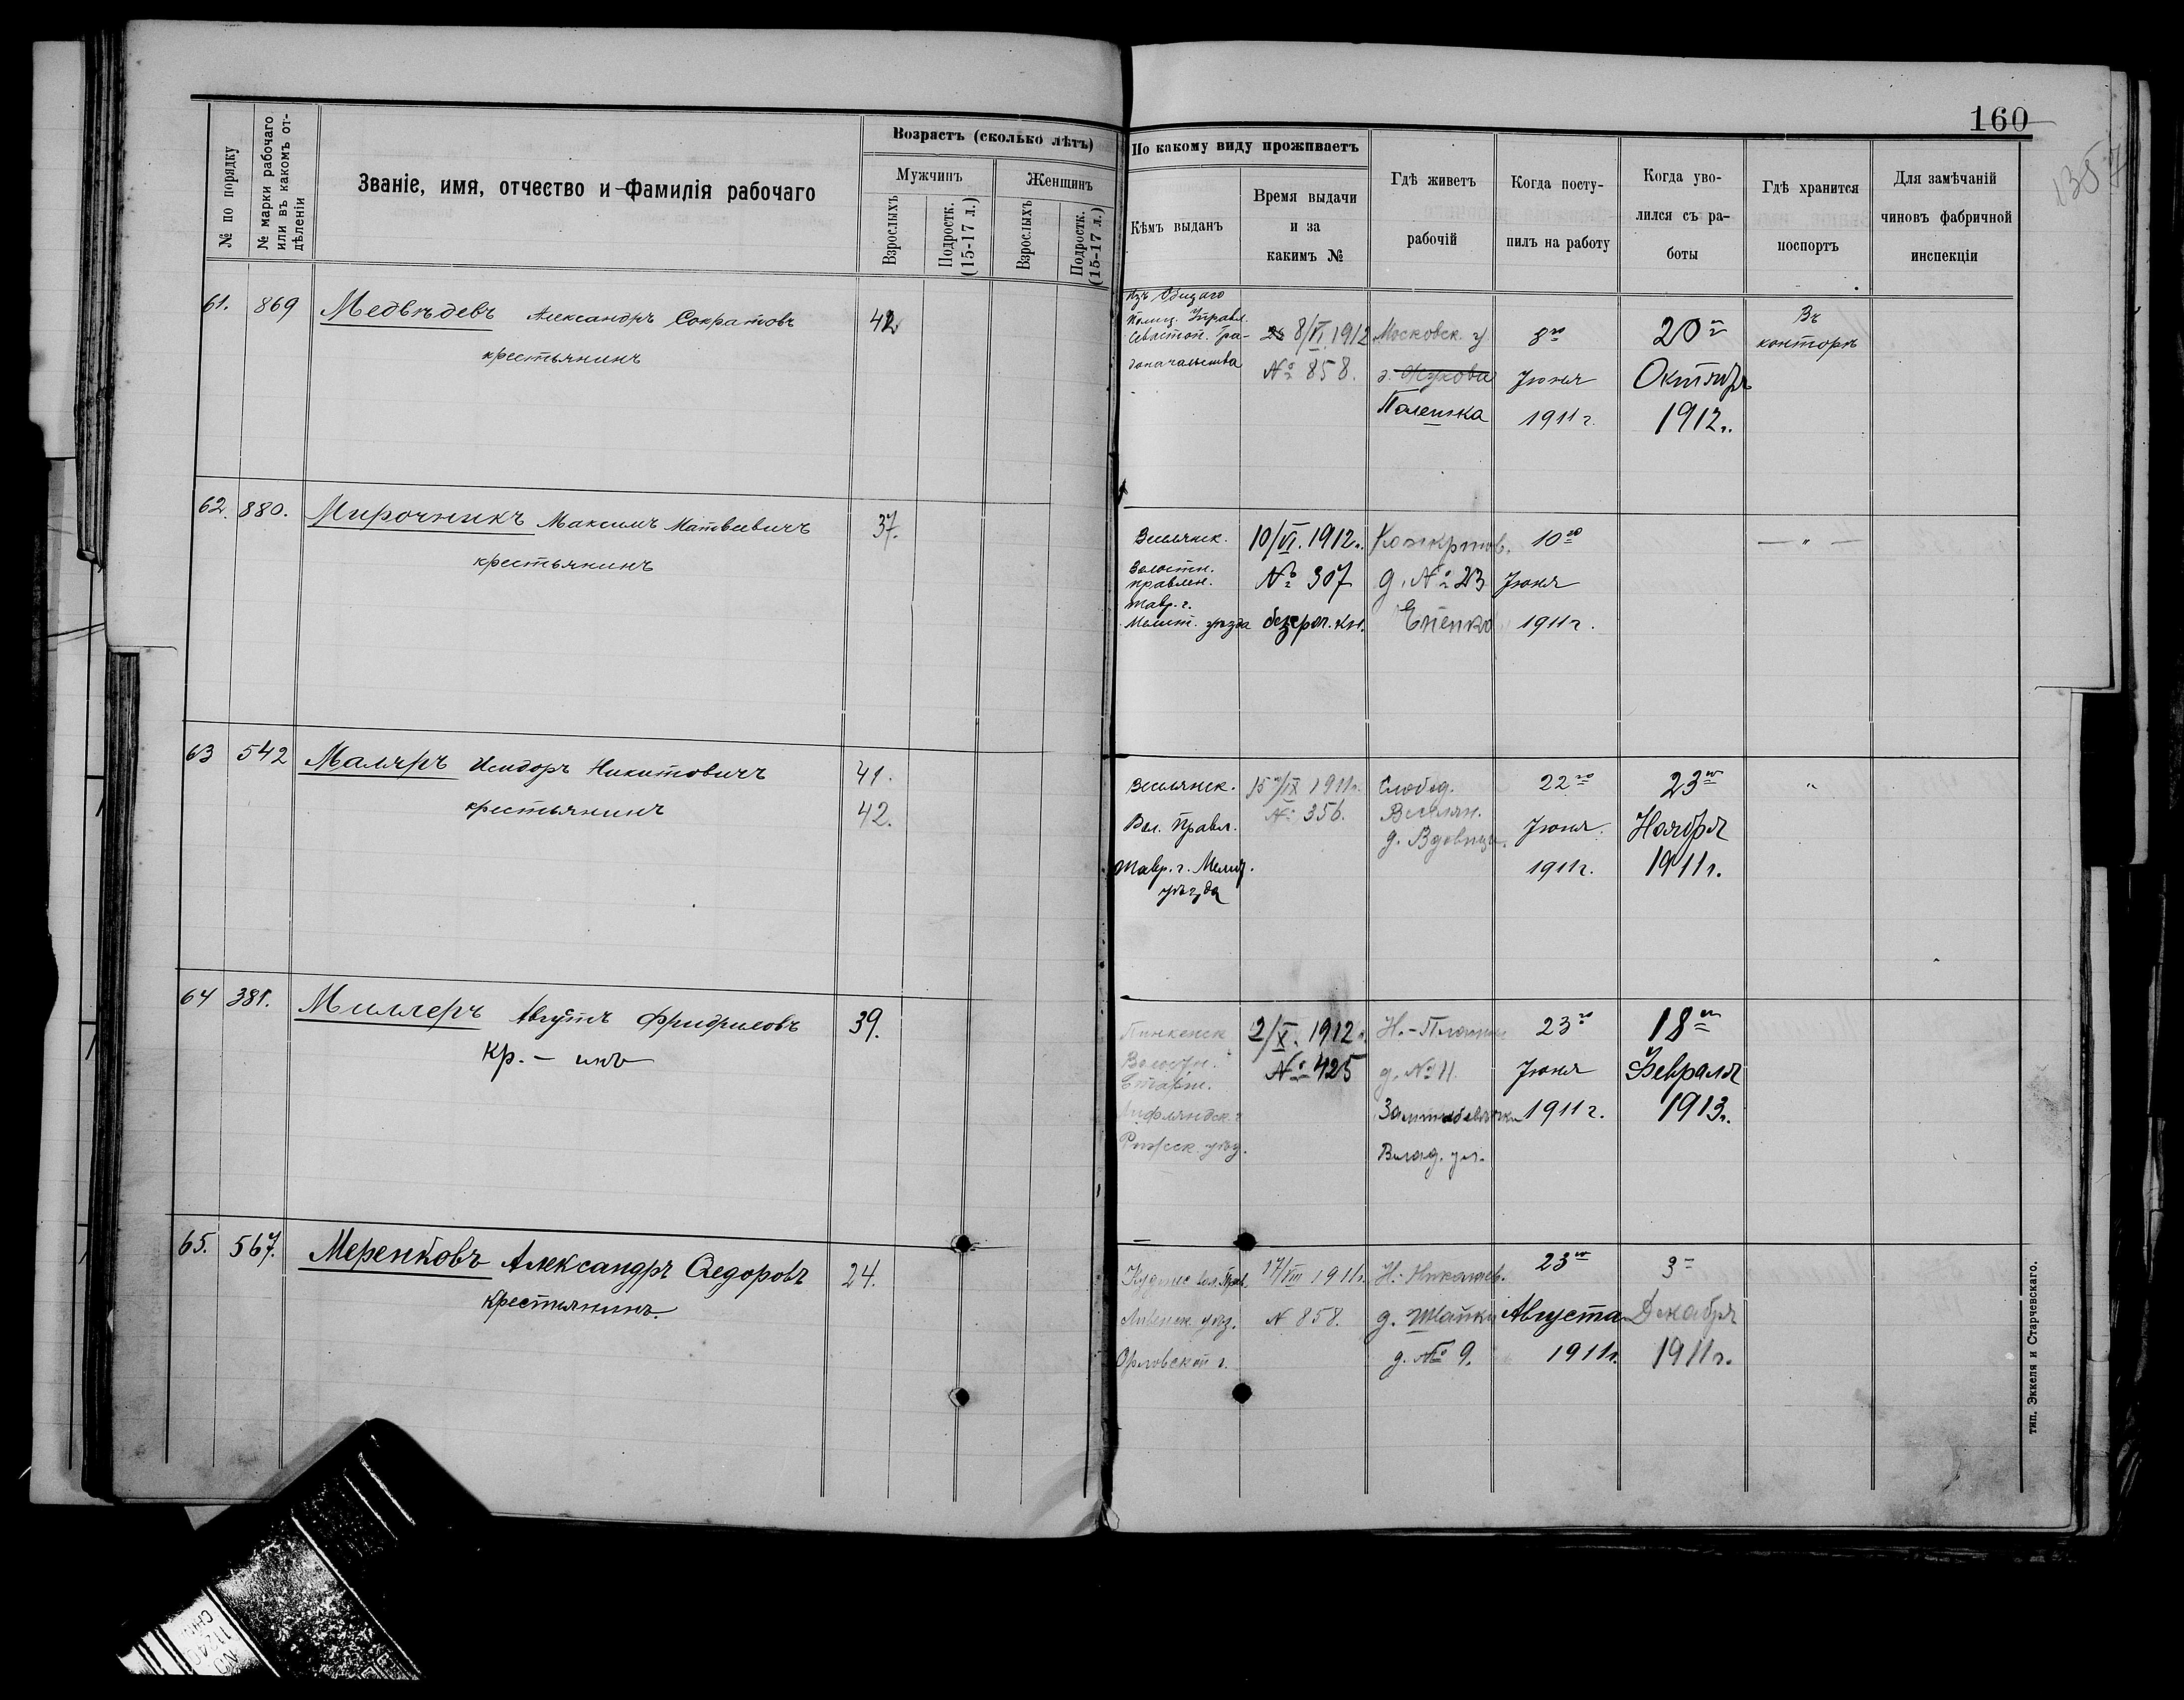 160
№ по порядку
№ марки рабочаго
или въ какомъ от-
дѣленіи
Званіе, имя, отчество и фамилія рабочаго
Возрастъ (сколько лѣтъ)
Мужчинъ
Женщинъ
Взрослыхъ
Подростк.
(15-17 л.)
Взрослыхъ
Подростк.
(15-17 л.)
По какому виду проживаетъ
Кѣмъ выданъ
Время выдачи
и за
какимъ №
Гдѣ живетъ
рабочій
Когда посту-
пилъ на работу
Когда уво-
лился съ ра-
боты
Гдѣ хранится
поспортъ
Для замѣчаній
чиновъ фабричной
инспекціи
61. 869 Медвѣдевъ Александръ Сократовъ
крестьянинъ
42
Изъ Общаго
Полиц. Управл.
Севастоп. Гра-
доначальства
8/VI 1912
№ 858.
Московск. у
д. Жукова
8го
Іюня
1911 г.
20го
Октября
1912 г.
Въ
конторѣ
62. 880. Мирочникъ Максимъ Матвѣевичъ
крестьянинъ
37.
Веселянск.
Волостн.
правлен.
Тавр. г.
Мелит. уѣзда
10/VI. 1912 г.
№ 307
безсроч. кн.
д. № 23
10го
Іюня
1911 г.
— " —
63 542 Маляръ Исидоръ Никитовичъ
крестьянинъ
41.
42.
Веселянск.
Вол. Правл.
Тавр. г. Мелит.
уѣзда
15/IX 1911 г.
№ 356.
Слобод.
Веселян.
д. Вдовицы.
22го
Іюня.
1911 г.
23го
Ноября
1911 г.
"
64 381. Миллеръ Августъ Фридриховъ
Кр. - инъ
39.
Пинкенск
Волостн.
Старш.
Лифляндск. г.
Рижск. уѣзд.
2/X. 1912 г.
№ 425
д. № 11.
Влад. ул.
23го
Іюня
1911 г.
18го
Февраля
1913 г.
65. 567. Меренковъ Александръ Ѳедоровъ
Крестьянинъ.
24.
вол. Прав.
Ливенск. уѣз.
Орловской г.
17/VIII 1911 г.
№ 858.
Н. Николаев.
д. Шайки
д. № 9.
23го
Августа
1911 г.
3го
Декабря
1911 г.
тип. Эккеля и Старчевскаго.